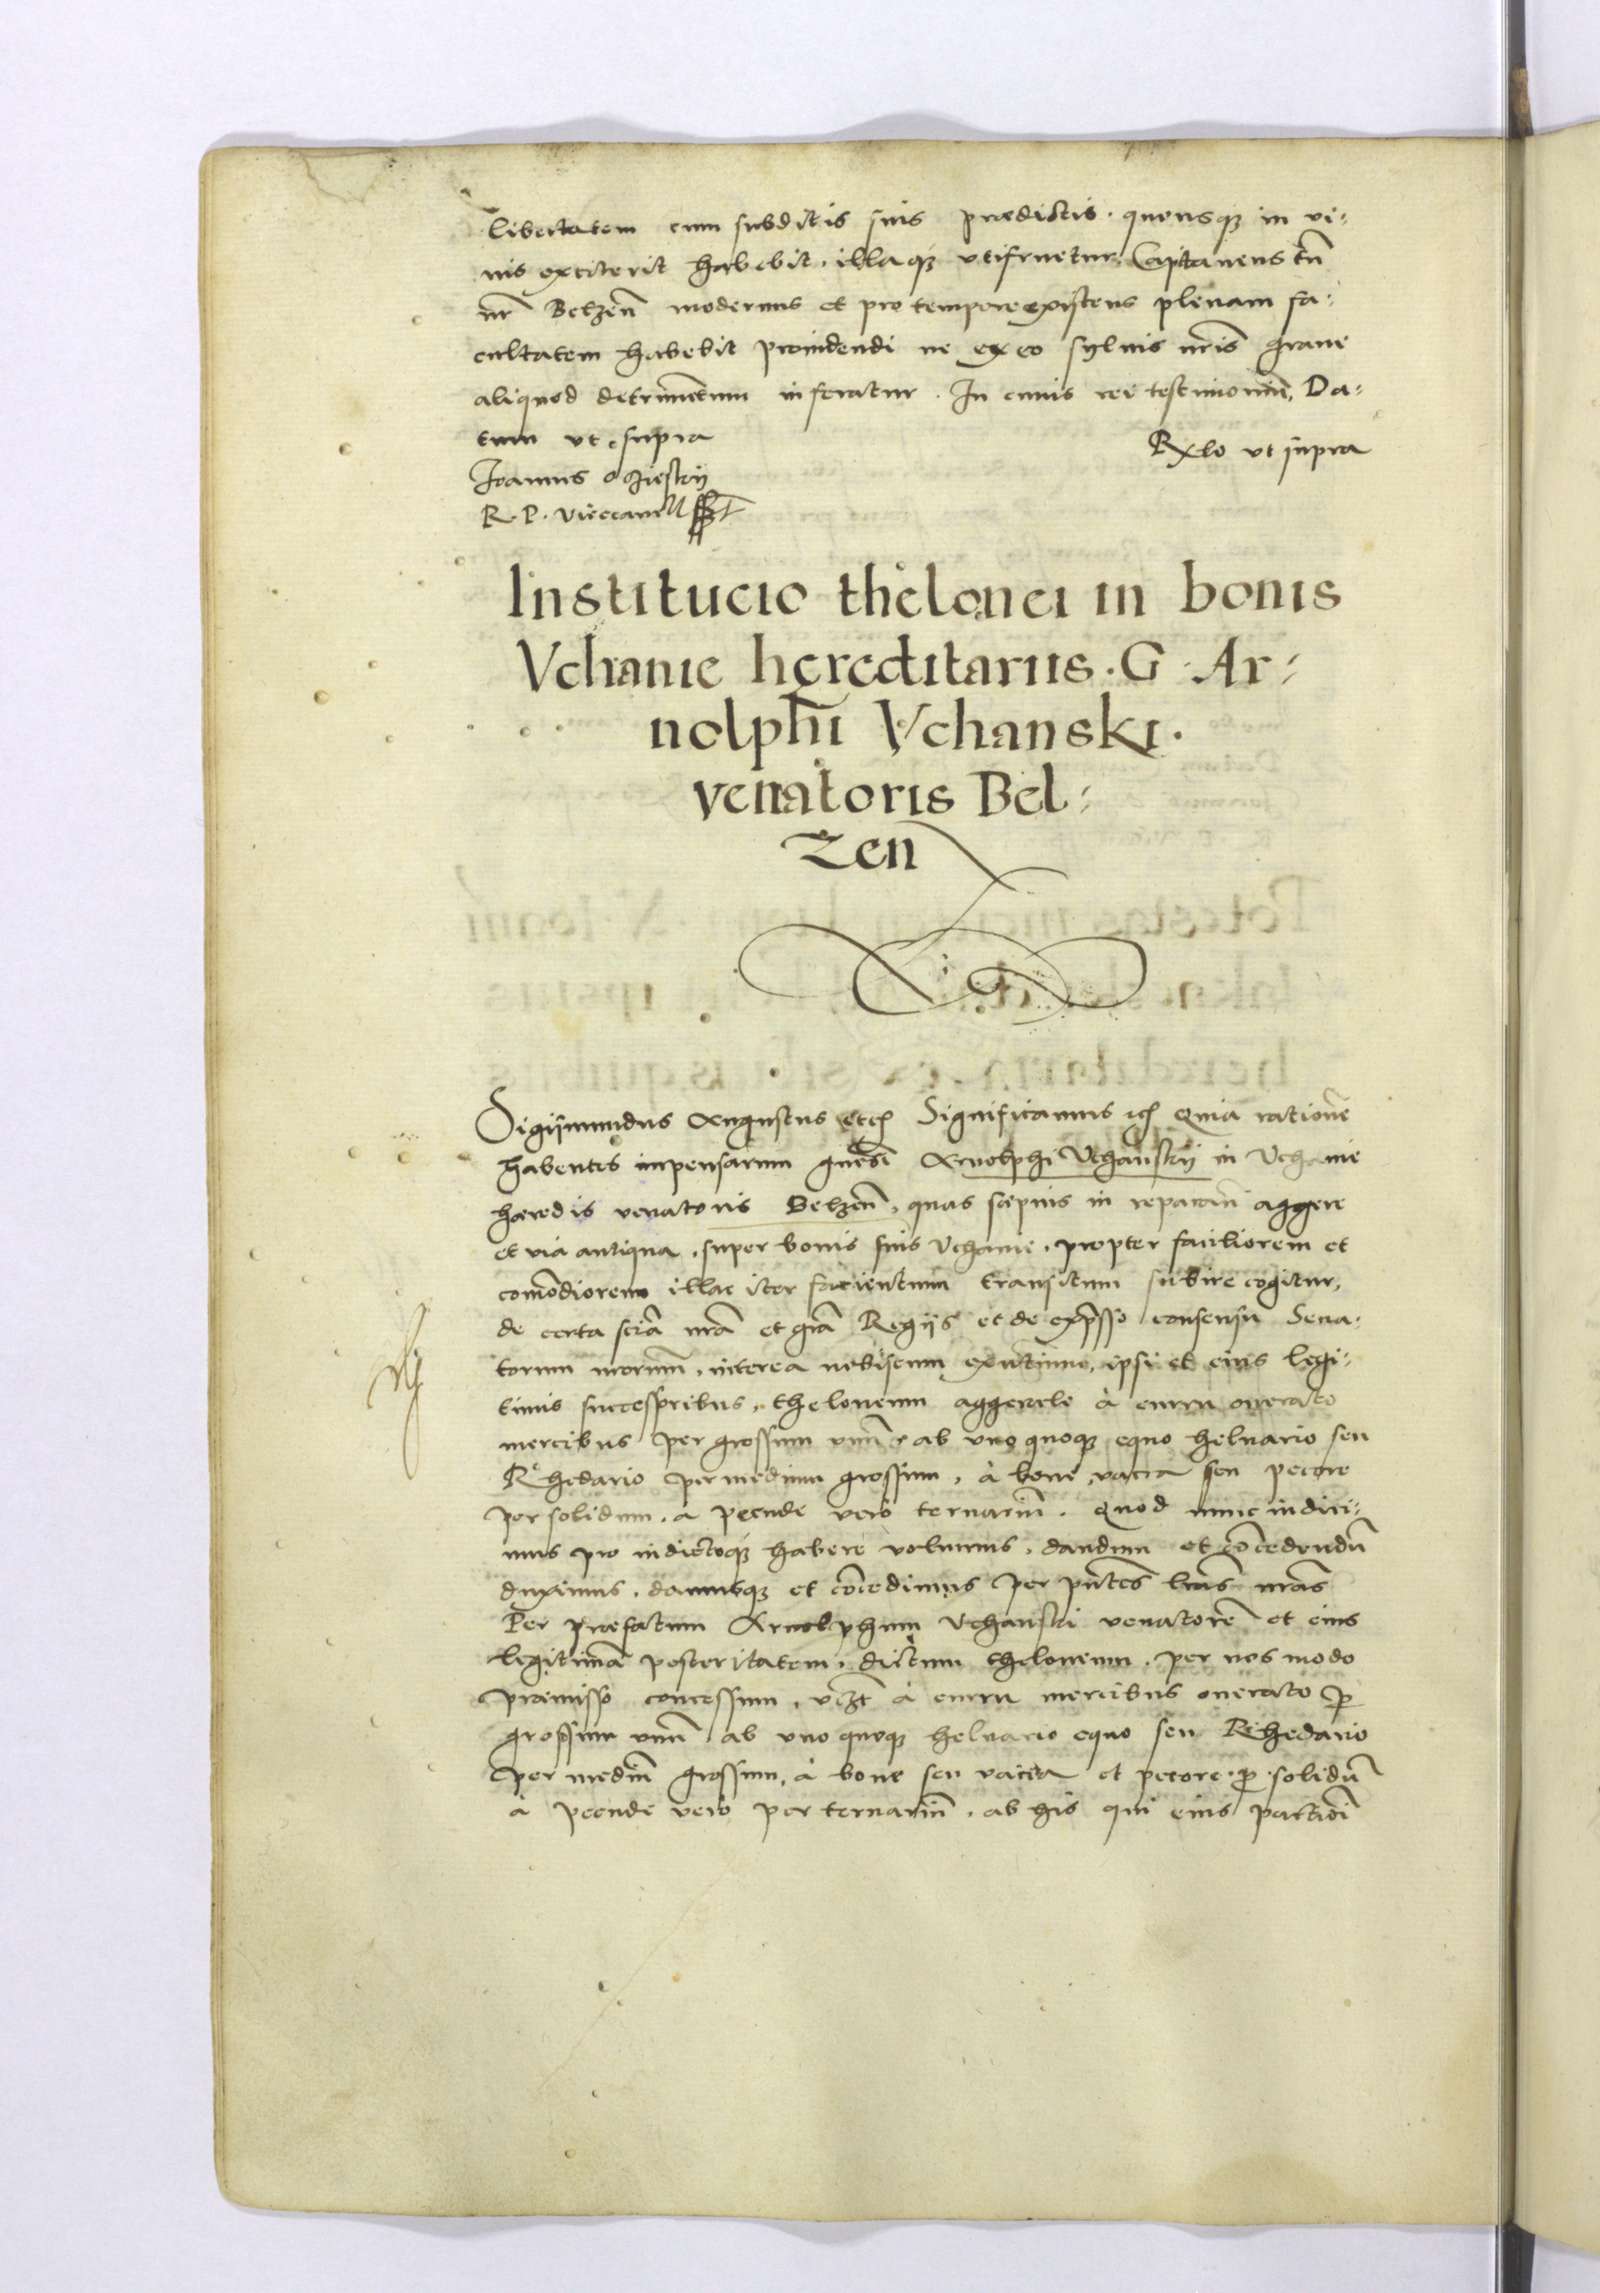 libertatem cum subditis suis praedictis. quousq₃ in vi:
uis extiterit habebit. illaq₃ utifruetur. Capitaneus tn̄
nr̄ Belzen̄ modernus et pro tempore existens plenam fa:
cultatem habebit prouidendi ne ex eo syluis nr̄is graue
aliquod detrimentum inferatur. In cuius rei testimoniū, Da:
tum ut supra
Rxlo ut supra
Joannes Ocziesky
R. P. Vicecancell
Institucio thelonei in bonis
Vchanie hereditariis. G. Ar:
nolphi Vchanski.
venatoris Bel:
zen
Sigismundus Augustus etc Significamus etc Quia rationē
habentes impensarum gn̄osi Arnolphi Vchansky in Vchanie
haeredis venatoris Belzen̄, quas saepius in reparan̄ aggere
et via antiqua. super bonis suis Vchanie. propter faciliorem et
com̄odiorem illac iter facientium transitum subire cogitur,
de certa sciā nr̄a et grā Regiis et de expresso consensu Sena:
torum nr̄orum. interea nobiscum existentium. ipsi et eius legi:
timis successoribus. theloneum aggerale à curru onerato
mercibus per grossum unū ab uno quoq₃ equo heluario seu
Rhedario per medium grossum, à boue, vacca seu pecore
per solidum. a pecude vero ternariū. Quod nunc indici:
mus pro indictoq₃ habere volumus. dandum et cōcedendū
duximus. damusq₃ et cōcedimus per pn̄tes lr̄as nr̄as
Per praefatum Arnolphum Vchanski venatorē et eius
legitimā posteritatem. dictum theloneum. per nos modo
praemisso concessum, vczt à curru mercibus onerato p
grossum unū ab uno quoq₃ heluario equo seu Rhedario
per mediū grossum, à boue seu vacca et pecore. p solidū
à pecude vero per ternariū. ab his qui eius